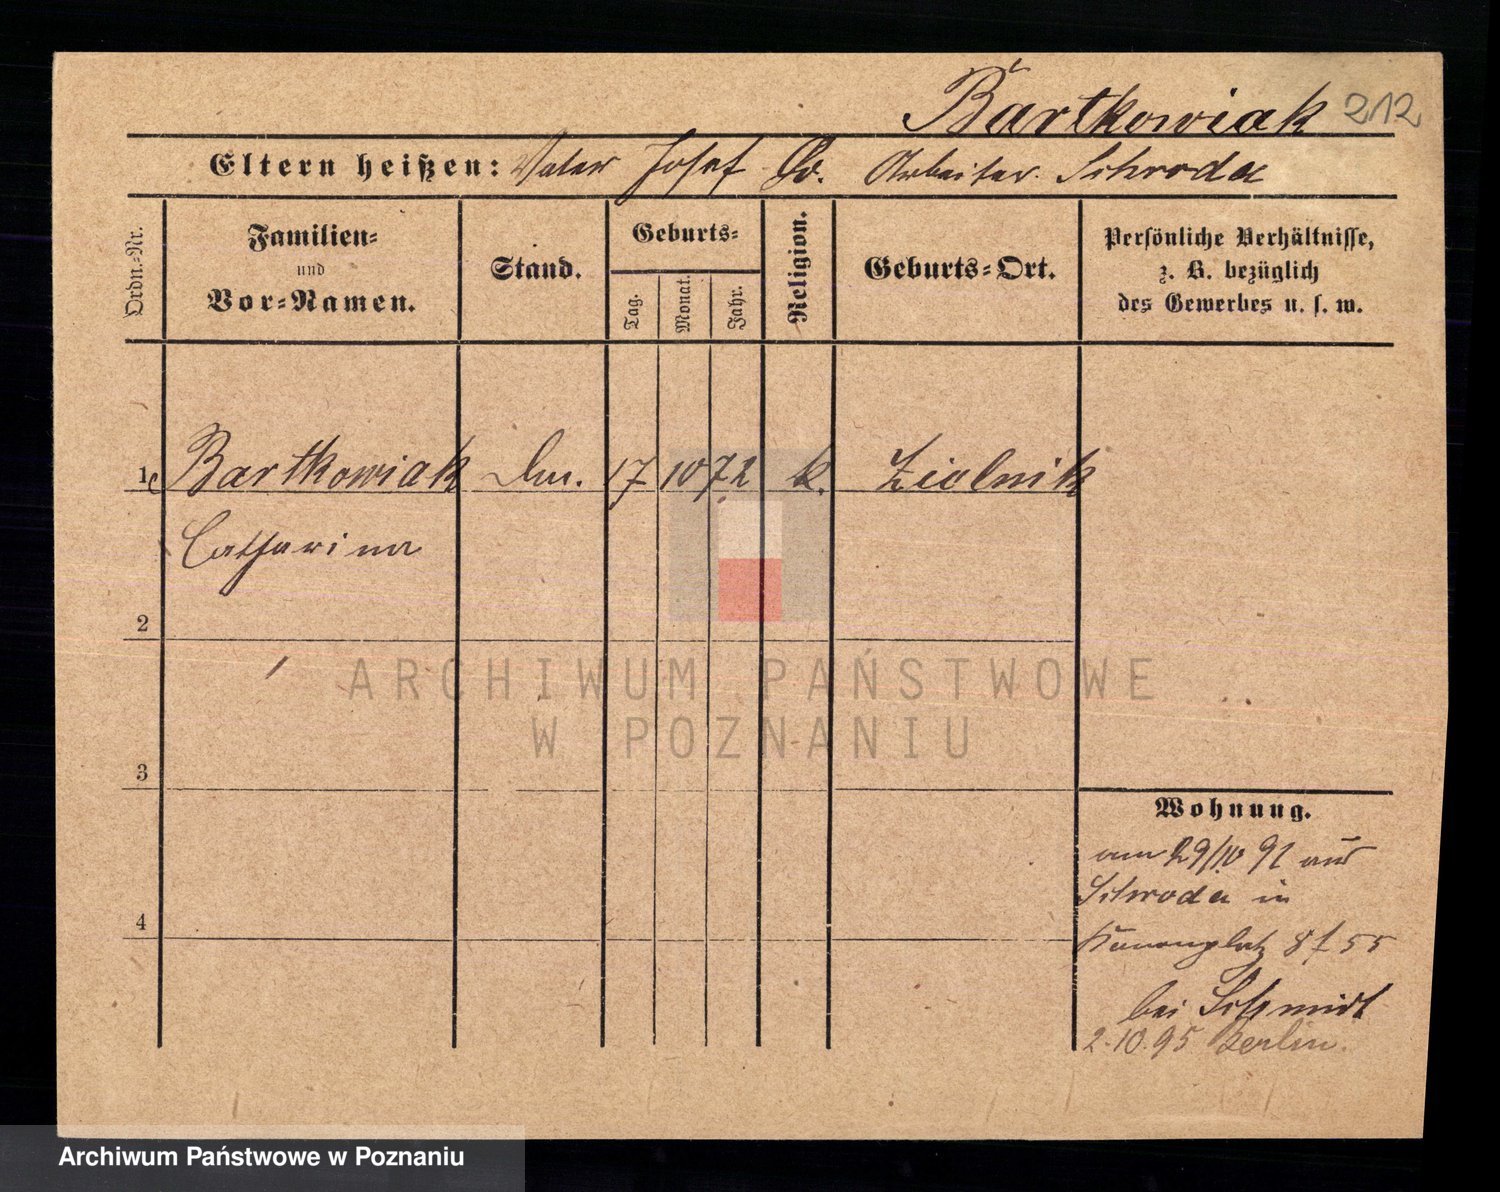 Bartkowiak 212
Eltern heißen: Vater Josef B. Arbeiter. Schroda
Ordn.-Nr.
Familien-
und
Vor-Namen.
Stand.
Geburts-
Tag.
Monat.
Jahr.
Religion.
Geburts-Ort.
Persönliche Verhältnisse,
z. B. bezüglich
des Gewerbes u. s. w.
1 Bartkowiak 17 10 72 k. Ziolnik
Catharina
2
3
4
Wohnung.
am 29/10 92 aus
Schroda in
Kanonenplatz 8 f 55
bei Schmidt
2.10.95 Berlin.
ARCHIWUM PAŃSTWOWE
W POZNANIU
Archiwum Państwowe w Poznaniu